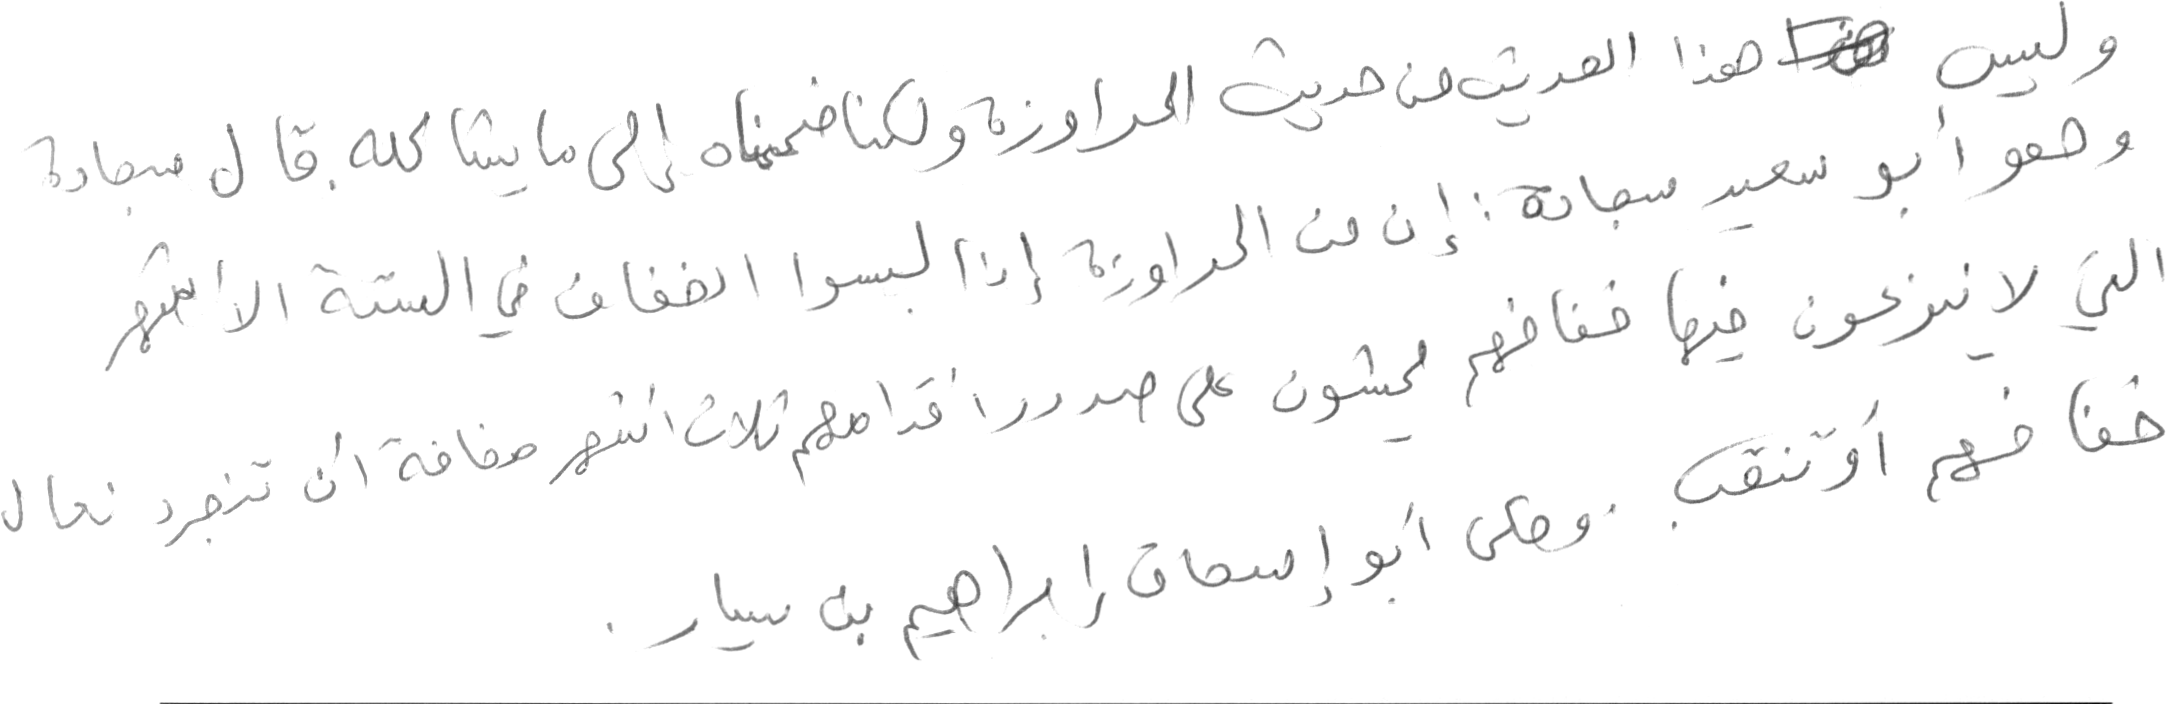 وليس هذا الحديث من حديث المراوزة ولكنا ضممناه إلى ما يشاكله. قال سجادة
وهو أبو سعيد سجادة: إن من المراوزة إذا لبسوا الخفاف في الستة الأشهر
التي لا ينزعون فيها خفافهم يمشون على صدور أقدامهم ثلاث أشهر مخافة أن تنجرد نعال
خفافهم أو تنقب. وحكى أبو إسحاق إبراهيم بن سيار.